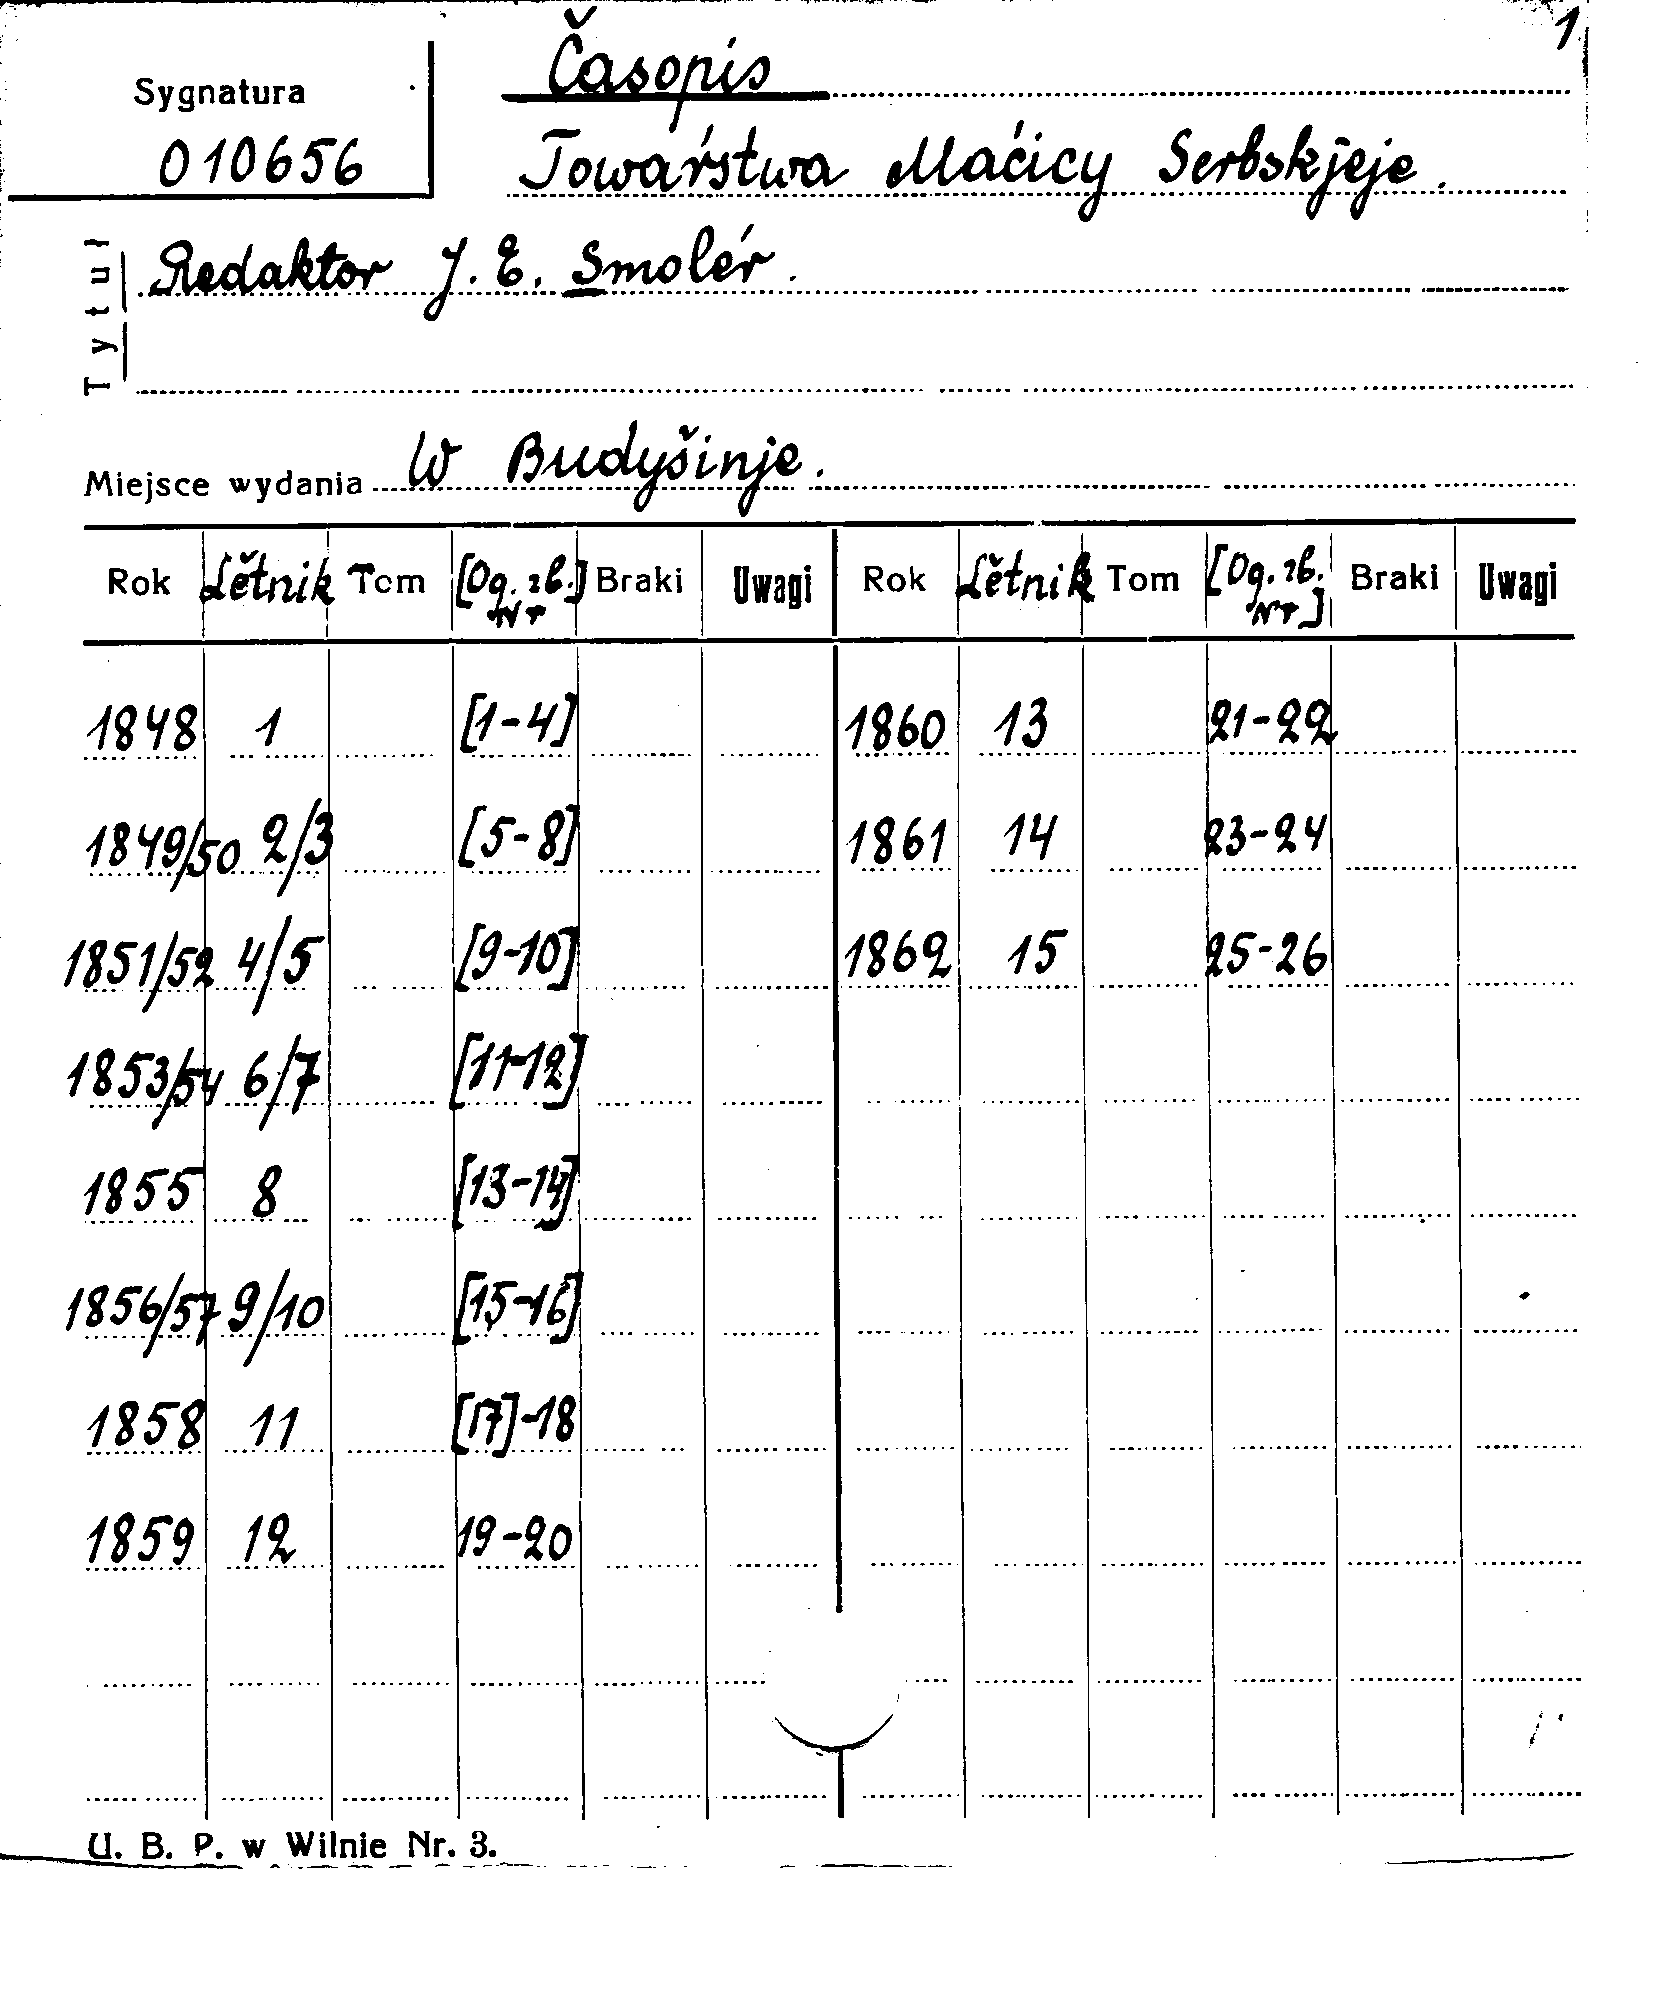 1
Časopis
Sygnatura
010656
Towaŕstwa Maćicy Serbskjeje.
Tytuł
Redaktor J. E. Smoleŕ.
Miejsce wydania W Budyšinje.
Rok Lětnik Tom [Og. zb. Nr] Braki Uwagi Rok Lětnik Tom [Og. zb. Nr] Braki Uwagi
1848 1 [1-4] 1860 13 21-22
1849/50 2/3 [5-8] 1861 14 23-24
1851/52 4/5 [9-10] 1862 15 25-26
1853/54 6/7 [11-12]
1855 8 [13-14]
1856/57 9/10 [15-16]
1858 11 [17]-18
1859 12 19-20
U. B. P. w Wilnie Nr. 3.